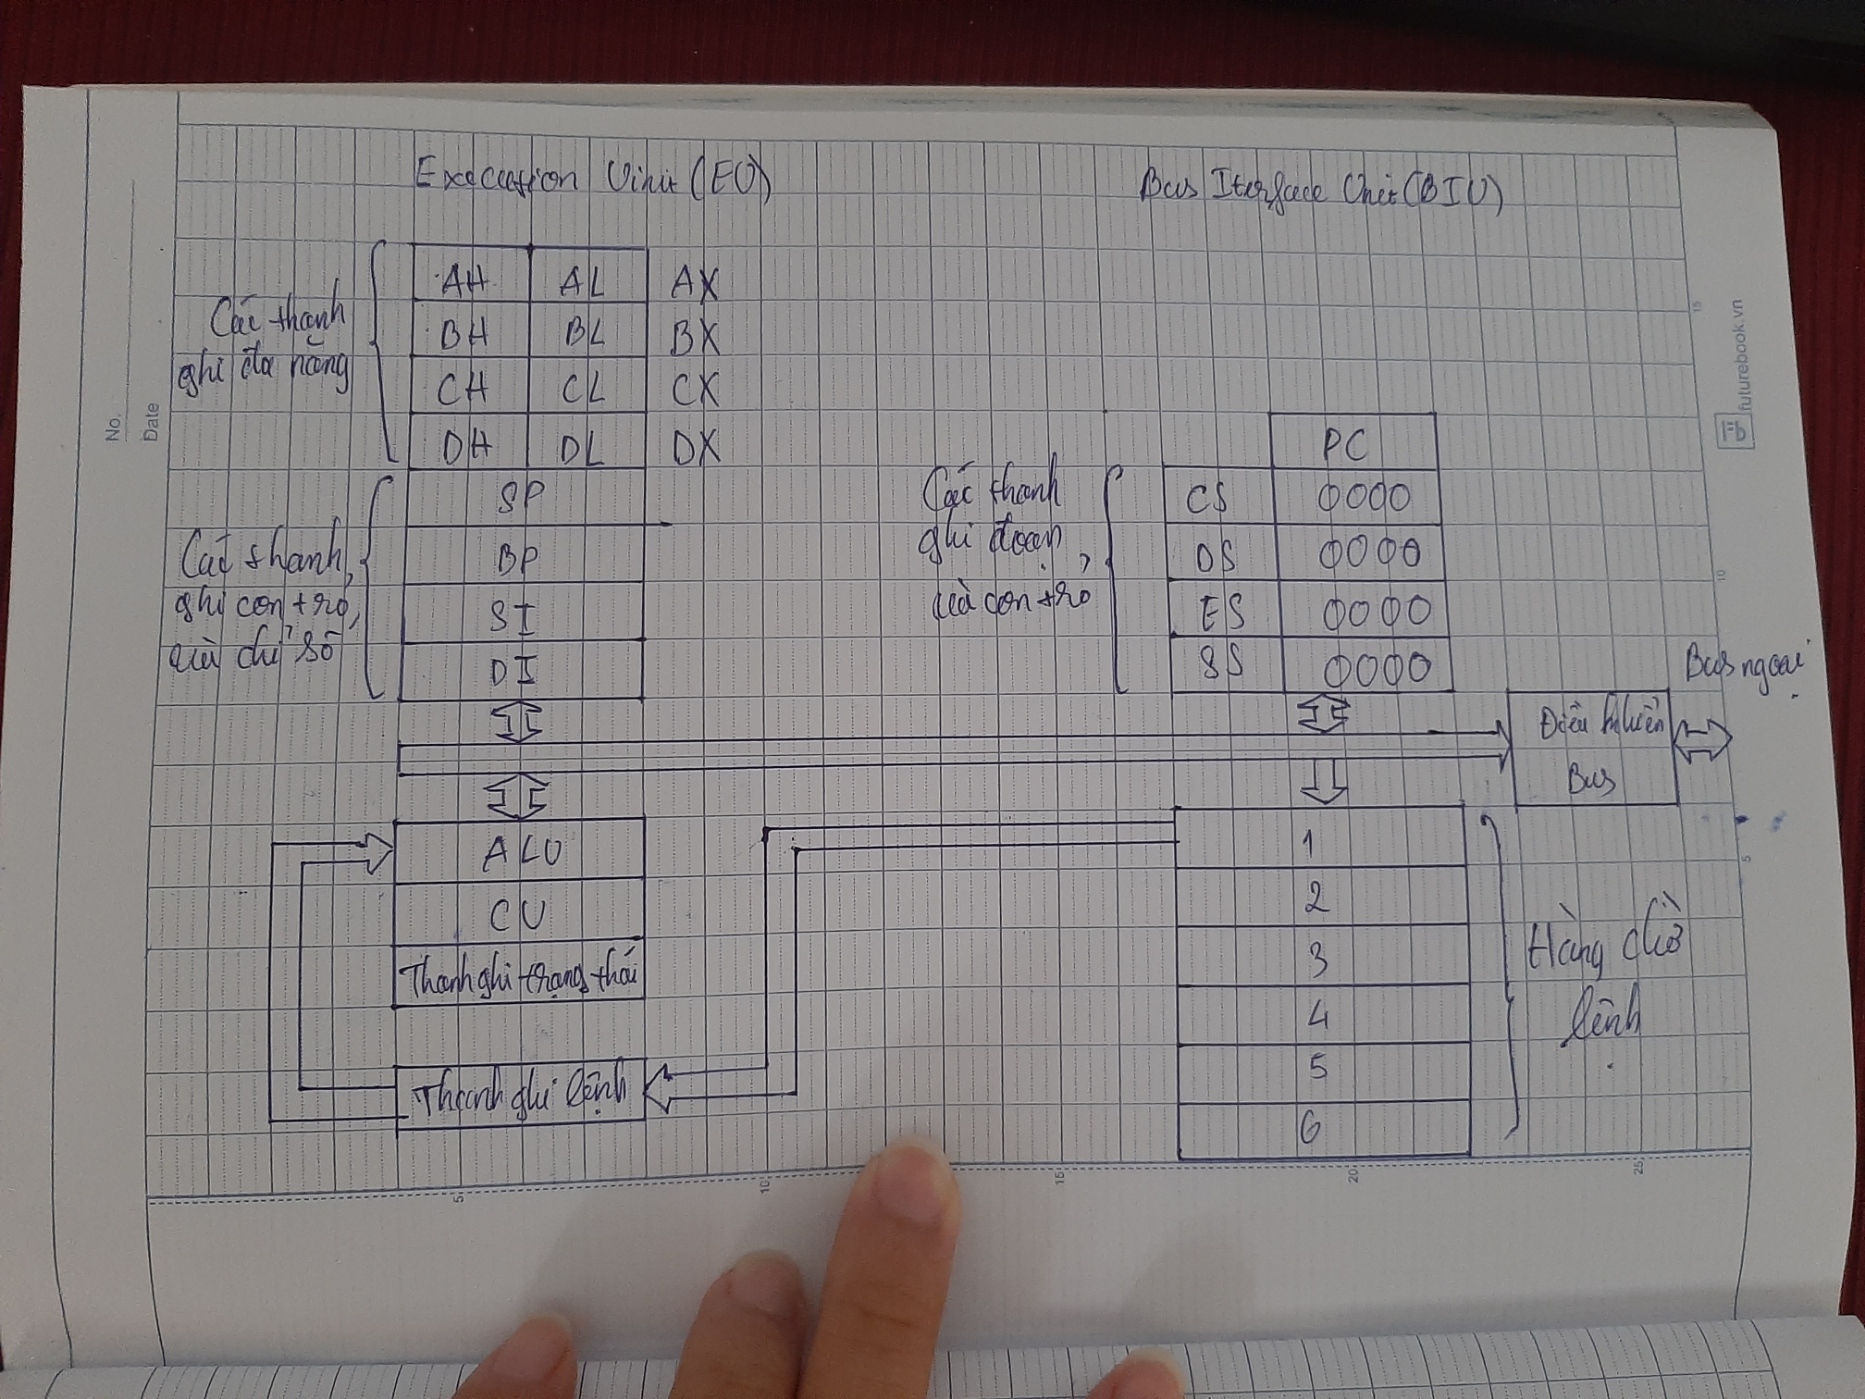 No.
Date
Execution Uinit (EU)
Các thanh
ghi đa năng
AH AL AX
BH BL BX
CH CL CX
DH DL DX
Các thanh
ghi con trỏ,
và chỉ số
SP
BP
SI
DI
ALU
CU
Thanh ghi trạng thái
Thanh ghi lệnh
Bus Iterface Unit (BIU)
Các thanh
ghi đoạn,
và con trỏ
PC
CS 0000
DS 0000
ES 0000
SS 0000
Điều khiển
Bus
Bus ngoài
1
2
3
4
5
6
Hàng chờ
lệnh
5
10
15
20
25
5
10
15
futurebook.vn